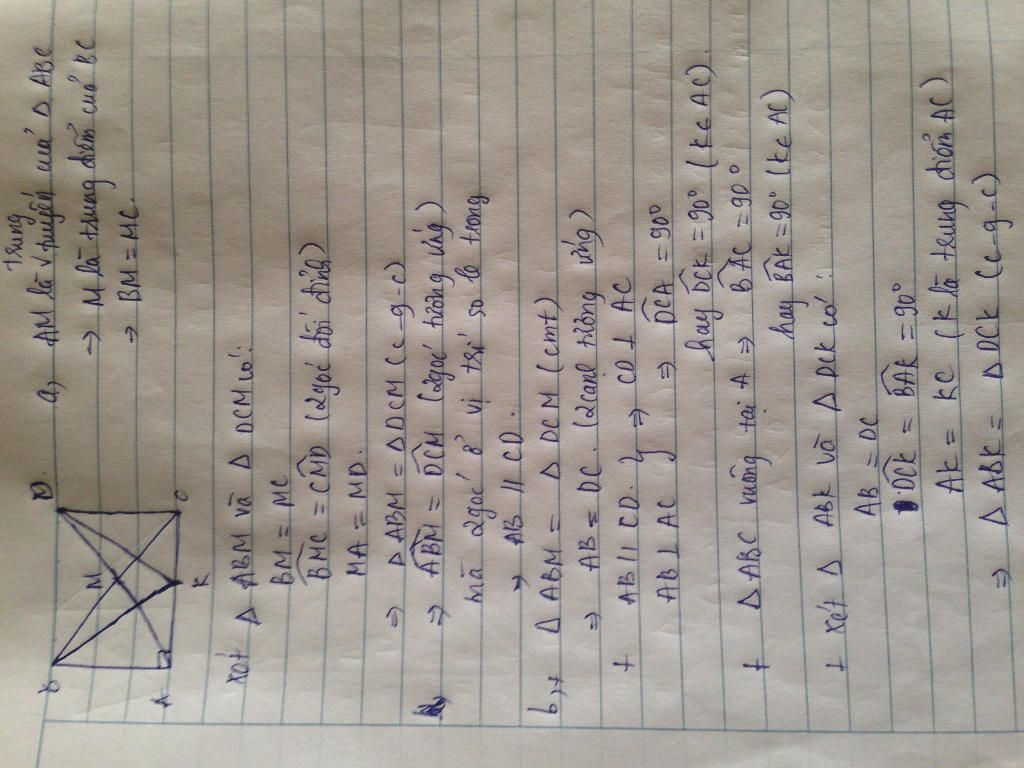 B D
M
A K C
a, AM là trung tuyến của Δ ABC
⇒ M là trung điểm của BC
⇒ BM = MC.
Xét Δ ABM và Δ DCM có:
BM = MC
BMC = CMD (2góc đối đỉnh)
MA = MD.
⇒ Δ ABM = Δ DCM (c-g-c)
⇒ ABM = DCM (2góc tương ứng)
mà 2góc ở vị trí so le trong
⇒ AB // CD.
b, + Δ ABM = Δ DCM (cmt)
⇒ AB = DC. (2cạnh tương ứng)
+ AB // CD. } ⇒ CD ⊥ AC
AB ⊥ AC } ⇒ DCA = 90°
hay DCK = 90° (K∈ AC).
+ Δ ABC vuông tại A ⇒ BAC = 90°
hay BAK = 90° (K∈ AC)
+ Xét Δ ABK và Δ DCK có:
AB = DC
DCK = BAK = 90°
AK = KC (K là trung điểm AC)
⇒ Δ ABK = Δ DCK (c-g-c)